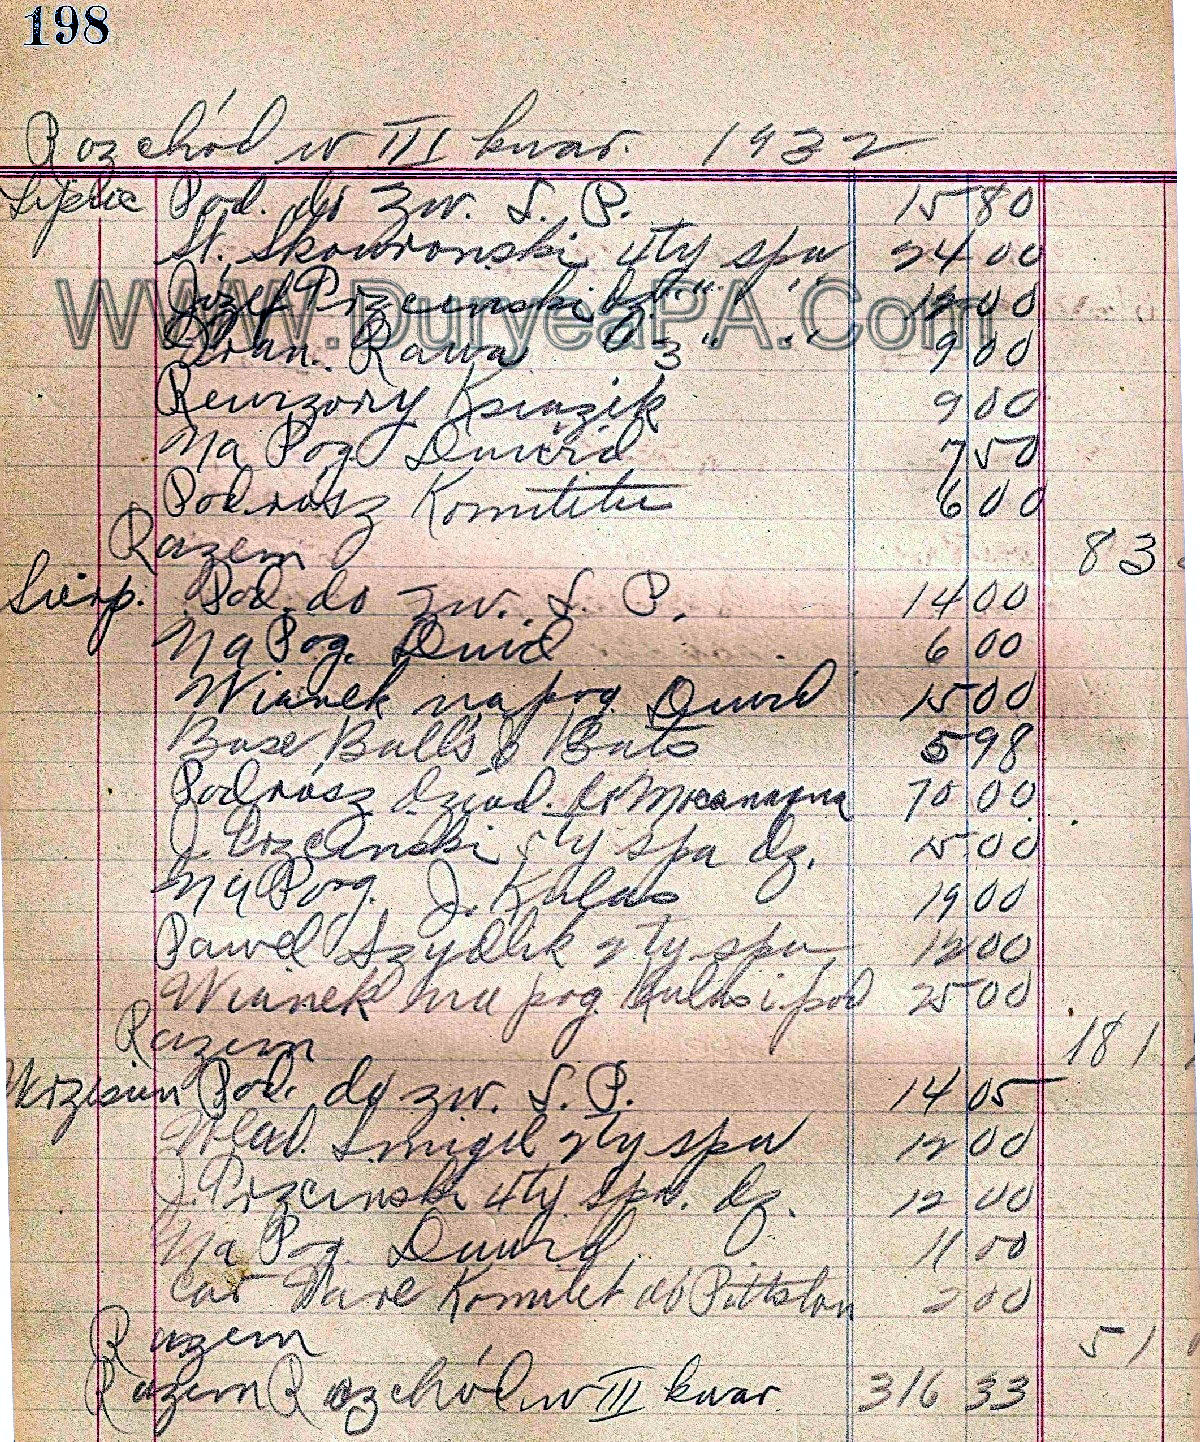 198
Rozchód w III kwar. 1932
Lipiec Pod. do zw. S. P. 15 80
St. Skowronski 4ty spa 24 00
Józef Przcinski dz. " " 12 00
WWW.DuryeaPA.Com
Rawa 3 " " 9 00
Rewizory Ksiazik 9 00
Na Pog. Duwid 7 50
Podrósz Komitetu 6 00
Razem 83
Sierp. Pod. do zw. S. P. 14 00
Na Pog. Duwid 6 00
Wianek na pog Duwid 15 00
Base Balls & Bats 5 98
Podrósz dziad. do Mocanaqua 70 00
J. Przcinski 5ty spa dz. 15 00
Na Pog. J. Kulas 19 00
Pawel Szydlik 2ty spa 12 00
Wianek na pog. Kulas i pod 25 00
Razem 181
Wrzesien Pod. do zw. S. P. 14 05
Wlad. Smigel 2ty spa 12 00
J. Przcinski 4ty spa. dz. 12 00
Na Pog. Duwid 11 00
Car Fare Komitet do Pittston 2 00
Razem 51
Razem Rozchód w III kwar. 316 33